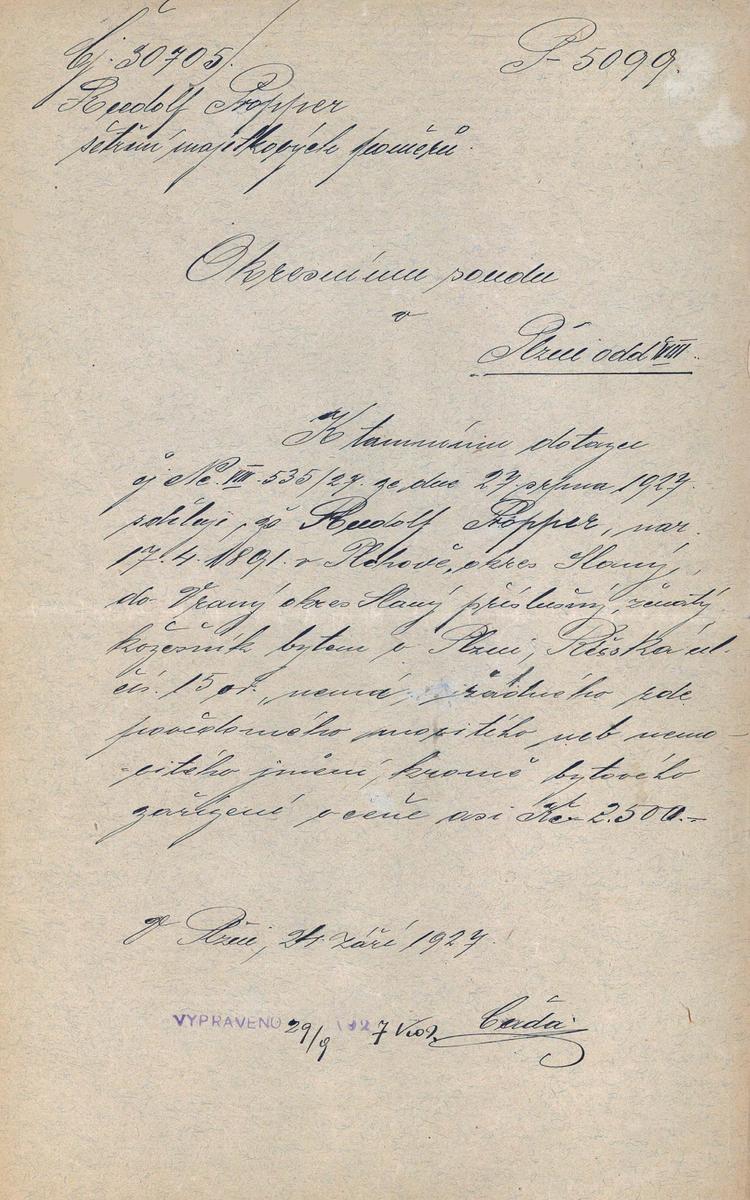 Čj. 30705/ P-5099.
Rudolf Popper
šetření majetkových poměrů.
Okresnímu soudu
v
Plzni odd VIII.
K tamnímu dotazu
čj Nc. VIII. 535/27. ze dne 27. srpna 1927.
sděluji, že Rudolf Popper, nar.
17. 4. 1891. v okres Slaný,
do Vraný okres Slaný příslušný, ženatý
kožešník bytem v Plzni, ul.
čís. 15 nemá, žádného zde
povědomého movitého neb nemo-
vitého jmění, kromě bytového
zařízení v ceně asi Kč 2.500.-
V Plzni, 24. září 1927.
VYPRAVENO 29/9 1927 Čada